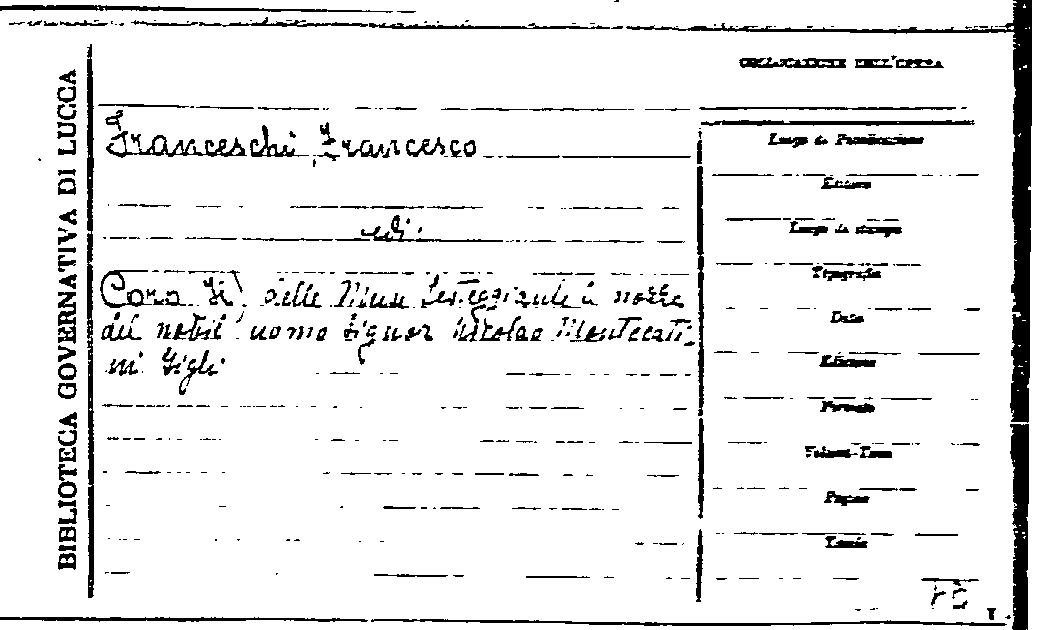 BIBLIOTECA GOVERNATIVA DI LUCCA
COLLOCAZIONE DELL'OPERA
Franceschi, Francesco
ed.
Coro delle Muse festeggianti le nozze
del nobil uomo Signor Nicolao Montecati-
ni Gigli
Luogo di Pubblicazione
Editore
Luogo di stampa
Tipografia
Data
Edizione
Formato
Volumi-Tomi
Pagine
Tavole